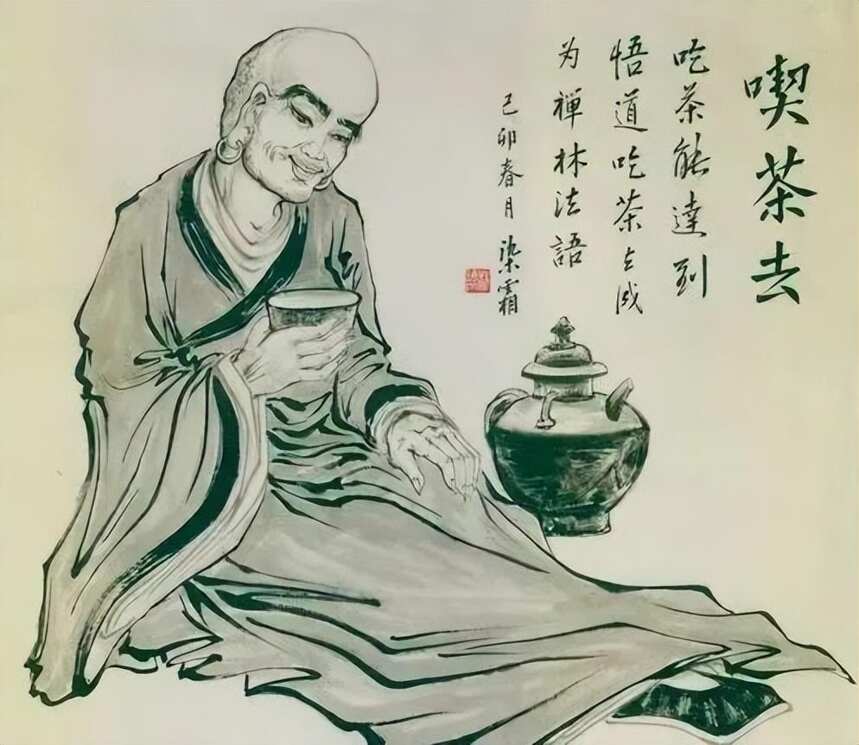 喫茶去
吃茶能達到
悟道吃茶去成
为禪林法語
己卯春月 染霜